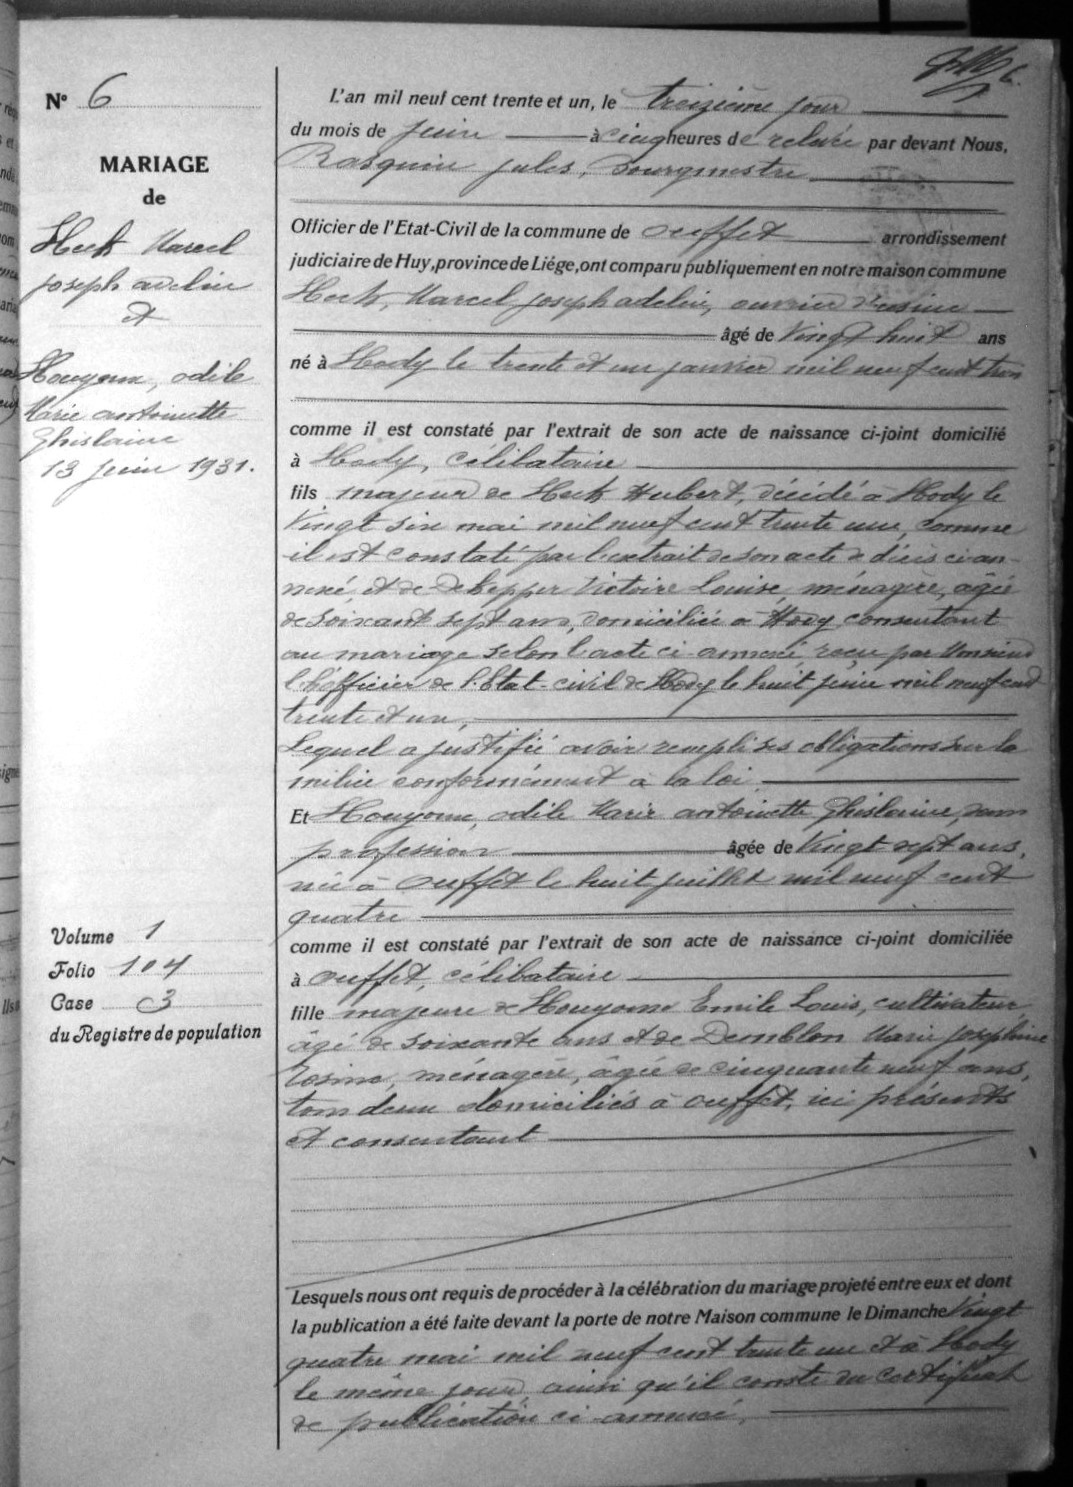 6.
N° 6
MARIAGE
de
Heck Marcel
Joseph adelin
et
Houyoux, odile
Marie antoinette
Ghislaine
13 juin 1931.
Volume 1
Folio 104
Case 3
du Registre de population
L'an mil neuf cent trente et un, le treizième jour
du mois de juin à cinq heures de relevée par devant Nous,
Rasquin jules, Bourgmestre
Officier de l'Etat-Civil de la commune de ouffet arrondissement
judiciaire de Huy, province de Liége, ont comparu publiquement en notre maison commune
Heck, Marcel joseph adelin, ouvrier d'usine
âgé de Vingt huit ans
né à Hody le trente et un janvier mil neuf cent trois
comme il est constaté par l'extrait de son acte de naissance ci-joint domicilié
à Hody, célibataire
fils majeur de Heck Hubert, décédé à Hody le
Vingt six mai mil neuf cent trente un, comme
il est constaté par l'extrait de son acte de décès ci an-
nexé, et de Dekepper Victoire Louise, ménagère, âgée
de soixant sept ans, domiciliée à Hody consentant
au mariage selon l'acte ci-annexé reçu par Monsieur
l'officier de l'Etat-civil de Hody le huit juin mil neuf cent
trente et un,
Lequel a justifié avoir rempli ses obligations sur la
milice conformément à la loi.
Et Houyoux, odile Marie antoinette Ghislaine, sans
profession âgée de Vingt sept ans,
née à Ouffet le huit juillet mil neuf cent
quatre
comme il est constaté par l'extrait de son acte de naissance ci-joint domiciliée
à ouffet, célibataire
fille majeure de Houyoux Emile Louis, cultivateur,
âgé de soixante ans et de Demblon Marie joséphine
Rosine, ménagère, âgée de cinquante neuf ans,
tous deux domiciliés à ouffet, ici présents
et consentant
Lesquels nous ont requis de procéder à la célébration du mariage projeté entre eux et dont
la publication a été faite devant la porte de notre Maison commune le Dimanche Vingt
quatre mai mil neuf cent trente un et à Hody
le même jour, ainsi qu'il conste du certificat
de publication ci-annexé,